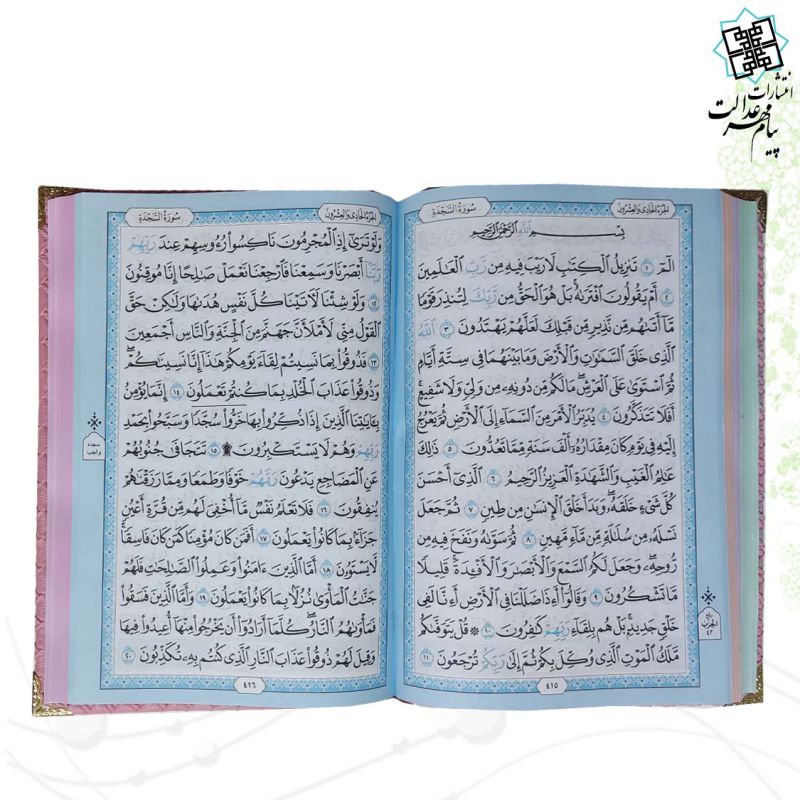 انتشارات
پیام مهر عدالت
الجزء الحادی والعشرون
سورة السجدة
بِسْمِ اللَّهِ الرَّحْمَٰنِ الرَّحِيمِ
الٓمٓ ۱ تَنزِيلُ الْكِتَٰبِ لَا رَيْبَ فِيهِ مِن رَّبِّ الْعَٰلَمِينَ
۲ أَمْ يَقُولُونَ افْتَرَىٰهُ بَلْ هُوَ الْحَقُّ مِن رَّبِّكَ لِتُنذِرَ قَوْمًا
مَّا أَتَىٰهُم مِّن نَّذِيرٍ مِّن قَبْلِكَ لَعَلَّهُمْ يَهْتَدُونَ ۳ اللَّهُ
الَّذِي خَلَقَ السَّمَٰوَٰتِ وَالْأَرْضَ وَمَا بَيْنَهُمَا فِي سِتَّةِ أَيَّامٍ
ثُمَّ اسْتَوَىٰ عَلَى الْعَرْشِ مَا لَكُم مِّن دُونِهِ مِن وَلِيٍّ وَلَا شَفِيعٍ
أَفَلَا تَتَذَكَّرُونَ ٤ يُدَبِّرُ الْأَمْرَ مِنَ السَّمَاءِ إِلَى الْأَرْضِ ثُمَّ يَعْرُجُ
إِلَيْهِ فِي يَوْمٍ كَانَ مِقْدَارُهُ أَلْفَ سَنَةٍ مِّمَّا تَعُدُّونَ ٥ ذَٰلِكَ
عَٰلِمُ الْغَيْبِ وَالشَّهَٰدَةِ الْعَزِيزُ الرَّحِيمُ ٦ الَّذِي أَحْسَنَ
كُلَّ شَيْءٍ خَلَقَهُ وَبَدَأَ خَلْقَ الْإِنسَٰنِ مِن طِينٍ ۷ ثُمَّ جَعَلَ
نَسْلَهُ مِن سُلَٰلَةٍ مِّن مَّاءٍ مَّهِينٍ ۸ ثُمَّ سَوَّىٰهُ وَنَفَخَ فِيهِ مِن
رُّوحِهِ وَجَعَلَ لَكُمُ السَّمْعَ وَالْأَبْصَٰرَ وَالْأَفْئِدَةَ قَلِيلًا
مَّا تَشْكُرُونَ ۹ وَقَالُوا أَءِذَا ضَلَلْنَا فِي الْأَرْضِ أَءِنَّا لَفِي
خَلْقٍ جَدِيدٍ بَلْ هُم بِلِقَاءِ رَبِّهِمْ كَٰفِرُونَ ۱۰ ۞ قُلْ يَتَوَفَّىٰكُم
مَّلَكُ الْمَوْتِ الَّذِي وُكِّلَ بِكُمْ ثُمَّ إِلَىٰ رَبِّكُمْ تُرْجَعُونَ ۱۱
٤١٥
الجزء الحادی والعشرون
سورة السجدة
وَلَوْ تَرَىٰ إِذِ الْمُجْرِمُونَ نَاكِسُوا رُءُوسِهِمْ عِندَ رَبِّهِمْ
رَبَّنَا أَبْصَرْنَا وَسَمِعْنَا فَارْجِعْنَا نَعْمَلْ صَٰلِحًا إِنَّا مُوقِنُونَ
۱۲ وَلَوْ شِئْنَا لَآتَيْنَا كُلَّ نَفْسٍ هُدَىٰهَا وَلَٰكِنْ حَقَّ
الْقَوْلُ مِنِّي لَأَمْلَأَنَّ جَهَنَّمَ مِنَ الْجِنَّةِ وَالنَّاسِ أَجْمَعِينَ
۱۳ فَذُوقُوا بِمَا نَسِيتُمْ لِقَاءَ يَوْمِكُمْ هَٰذَا إِنَّا نَسِينَٰكُمْ
وَذُوقُوا عَذَابَ الْخُلْدِ بِمَا كُنتُمْ تَعْمَلُونَ ۱٤ إِنَّمَا يُؤْمِنُ
بِآيَٰتِنَا الَّذِينَ إِذَا ذُكِّرُوا بِهَا خَرُّوا سُجَّدًا وَسَبَّحُوا بِحَمْدِ
رَبِّهِمْ وَهُمْ لَا يَسْتَكْبِرُونَ ۩ ۱٥ تَتَجَافَىٰ جُنُوبُهُمْ
عَنِ الْمَضَاجِعِ يَدْعُونَ رَبَّهُمْ خَوْفًا وَطَمَعًا وَمِمَّا رَزَقْنَٰهُمْ
يُنفِقُونَ ۱٦ فَلَا تَعْلَمُ نَفْسٌ مَّا أُخْفِيَ لَهُم مِّن قُرَّةِ أَعْيُنٍ
جَزَاءً بِمَا كَانُوا يَعْمَلُونَ ۱۷ أَفَمَن كَانَ مُؤْمِنًا كَمَن كَانَ فَاسِقًا
لَّا يَسْتَوُونَ ۱۸ أَمَّا الَّذِينَ آمَنُوا وَعَمِلُوا الصَّٰلِحَٰتِ فَلَهُمْ
جَنَّٰتُ الْمَأْوَىٰ نُزُلًا بِمَا كَانُوا يَعْمَلُونَ ۱۹ وَأَمَّا الَّذِينَ فَسَقُوا
فَمَأْوَىٰهُمُ النَّارُ كُلَّمَا أَرَادُوا أَن يَخْرُجُوا مِنْهَا أُعِيدُوا فِيهَا
وَقِيلَ لَهُمْ ذُوقُوا عَذَابَ النَّارِ الَّذِي كُنتُم بِهِ تُكَذِّبُونَ ۲۰
٤١٦
سجده
واجب